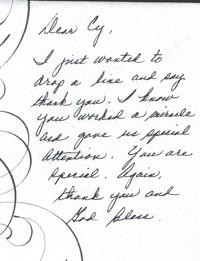 Dear Cy,
I just wanted to
drop a line and say
thank you. I know
you worked a miracle
and gave us special
attention. You are
special. Again,
thank you and
God Bless.